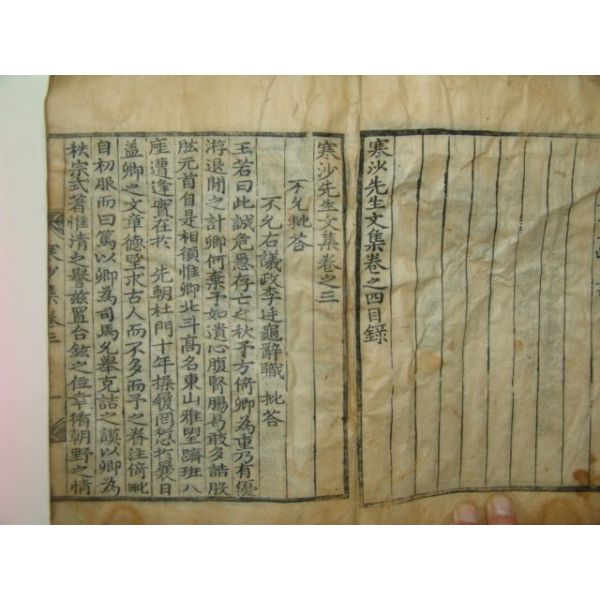 寒沙先生文集卷之四目錄
寒沙先生文集卷之三
不允批答
不允右議政李廷龜辭職 批答
王若曰此誠危急存亡之秋予方倚卿為重乃有優
游退閒之計卿何棄予如遺心腹腎腸曷敢多誥股
肱元首自是相須惟卿北斗高名東山雅望躋班八
座遭逢實在於 先朝杜門十年操履罔愆於曩日
盖卿之文章德望求古人而不多而予之眷注倚毗
自初服而曰篤以卿為司馬允舉克詰之謨以卿為
秩宗式著惟清之譽玆置台鉉之位幸循朝野之情
寒沙集卷三 一